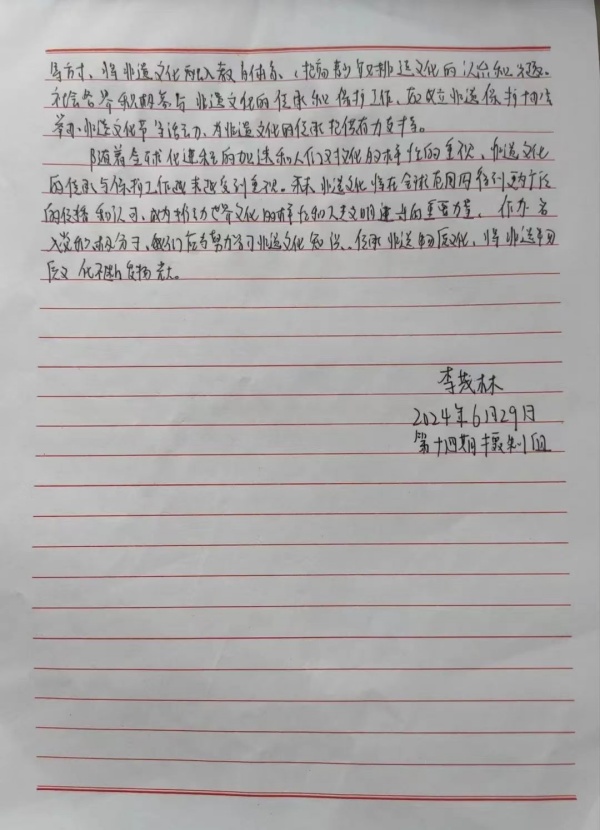 等方式、将非遗文化融入教育体系、提高青少年对非遗文化的认知和兴趣。
社会各界积极参与非遗文化的传承和保护工作、成立非遗保护
举办非遗文化节等活动、为非遗文化的传承提供有力支持。
随着全球化进程的加速和人们对文化多样性的重视、非遗文化
的传承与保护工作越来越受到重视。未来非遗文化将在全球范围内得到更加广泛
的传播和认可、成为推动世界文化多样性和人类文明进步的重要力量、作为名
入党积极分子、我们应当努力学习非遗文化知识、传承非遗文化、将非遗
文化不断发扬光大。
李茂林
2024年6月29日
第十四期